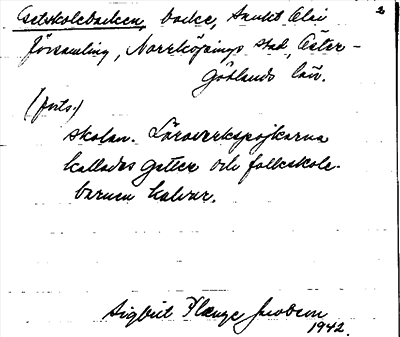 2
Getskolebacken, backe, Sankt Olai
församling, Norrköpings stad, Öster-
götlands län.
(forts.)
skolan. Läroverkspojkarna
kallades getter och folkskole-
barnen kalvar.
Sigbrit Plænge Jacobson
1942.